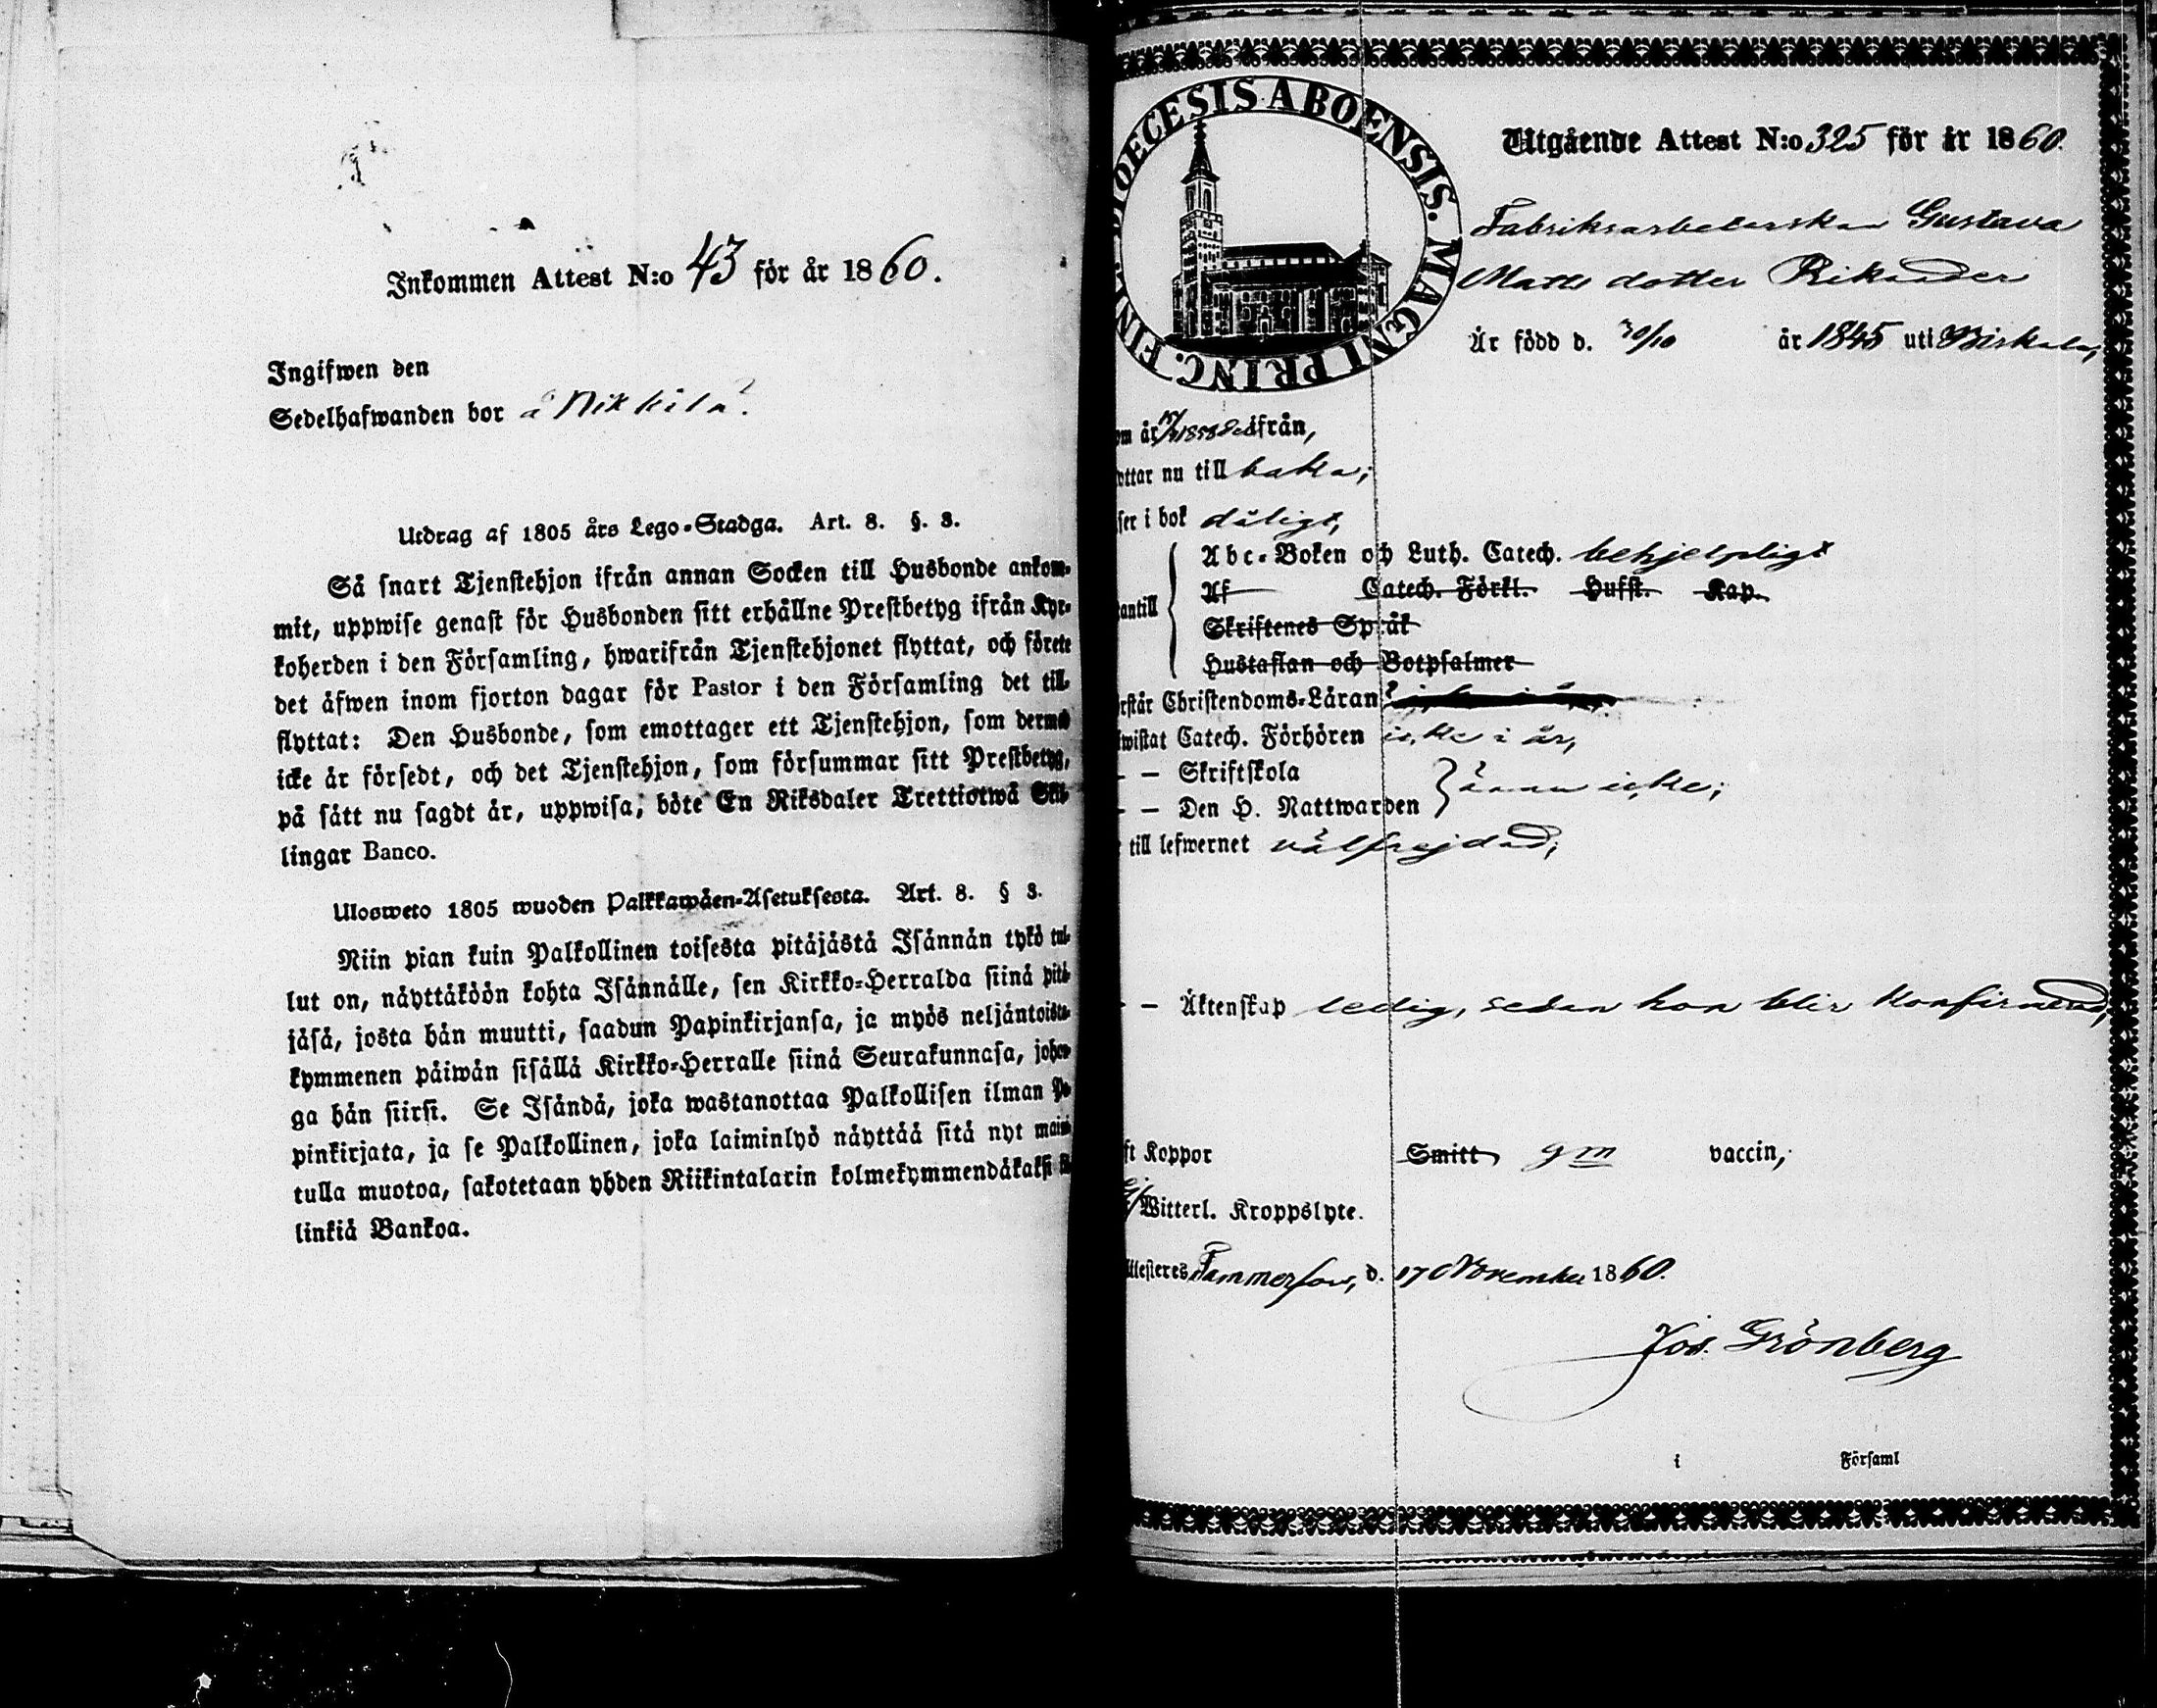 Inkommen Attest N:o 43 för år 1860.
Ingifwen den
Sedelhafwanden bor å Nikkilä.
Utdrag af 1805 års Lego-Stadga. Art. 8. §. 8.
Så snart Tjenstehjon ifrån annan Socken till Husbonde ankom-
mit, uppwise genast för Husbonden sitt erhållne Prestbetyg ifrån Kyr-
koherden i den Församling, hwarifrån Tjenstehjonet flyttat, och förete
det äfwen inom fjorton dagar för Pastor i den Församling det till-
flyttat: Den Husbonde, som emottager ett Tjenstehjon, som dermed
icke är försedt, och det Tjenstehjon, som försummar sitt Prestbetyg,
på sätt nu sagdt är, uppwisa, böte En Riksdaler Trettiotwå Skil-
lingar Banco.
Ulosweto 1805 wuoden Palkkawäen-Asetuksesta. Art. 8. § 8.
Niin pian kuin Palkollinen toisesta pitäjästä Isännän tykö tul-
lut on, näyttäköön kohta Isännälle, sen Kirkko-Herralda siinä pitä-
jäsä, josta hän muutti, saadun Papinkirjansa, ja myös neljäntoista-
kymmenen päiwän sisällä Kirkko-Herralle siinä Seurakunnasa, johon-
ga hän siirsi. Se Isändä, joka wastanottaa Palkollisen ilman Pa-
pinkirjata, ja se Palkollinen, joka laiminlyö näyttää sitä nyt maini-
tulla muotoa, sakotetaan yhden Riikintalarin kolmekymmendäkaksi kil-
linkiä Bankoa.
DIOECESIS ABOENSIS. MAGNI PRINC. FINL.
Utgående Attest N:o 325 för år 1860.
Fabriksarbeterskan Gustava
Matts dotter Rikander
Är född d. 30/10 år 1845 uti Birkala,
om år 1858 ifrån,
ottar nu till baka;
ser i bok dåligt,
Abc-Boken och Luth. Catech. behjelpligt
Af Catech. Förkl. Hufst. Kap.
antill Skriftenes Språk
Hustaflan och Botpsalmer
rstår Christendoms-Läran
wistat Catech. Förhören icke i år,
— Skriftskola
— Den H. Nattwarden ännu icke;
till lefwernet välfrejdad;
— Äktenskap ledig, sedan hon blir konfirmerad,
ft Koppor Smitt gm vaccin,
Witterl. Kroppslyte.
Attesteres Tammerfors, d. 17 November 1860.
Jos. Grönberg
i Församl